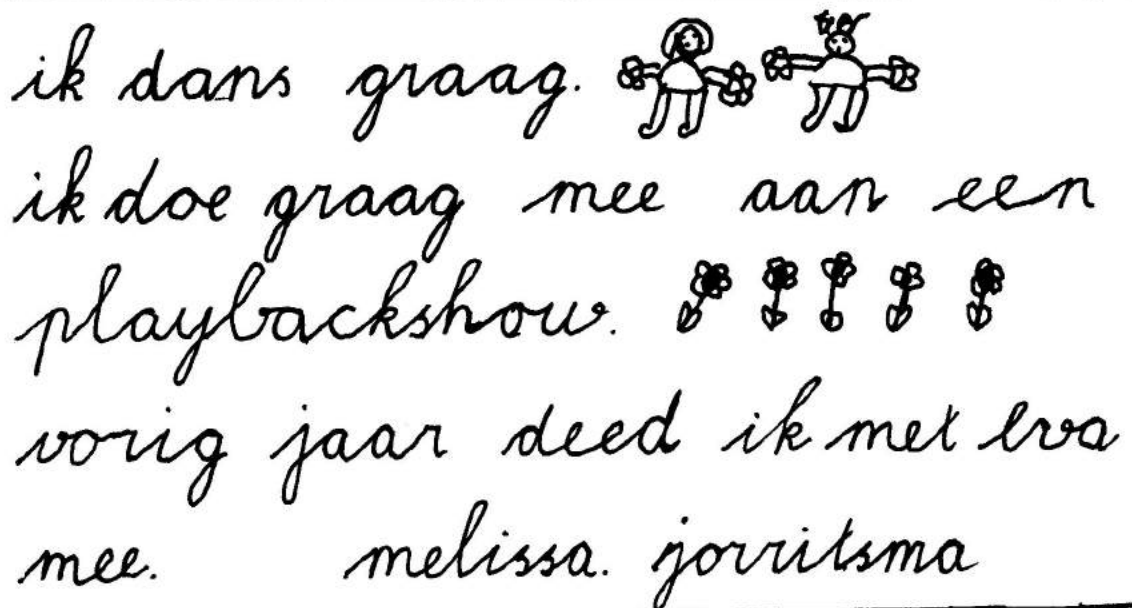 ik dans graag.
ik doe graag mee aan een
playbackshow.
vorig jaar deed ik met eva
mee. melissa. jorritsma